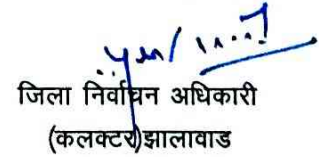 जिला निर्वाचन अधिकारी
(कलक्टर)झालावाड